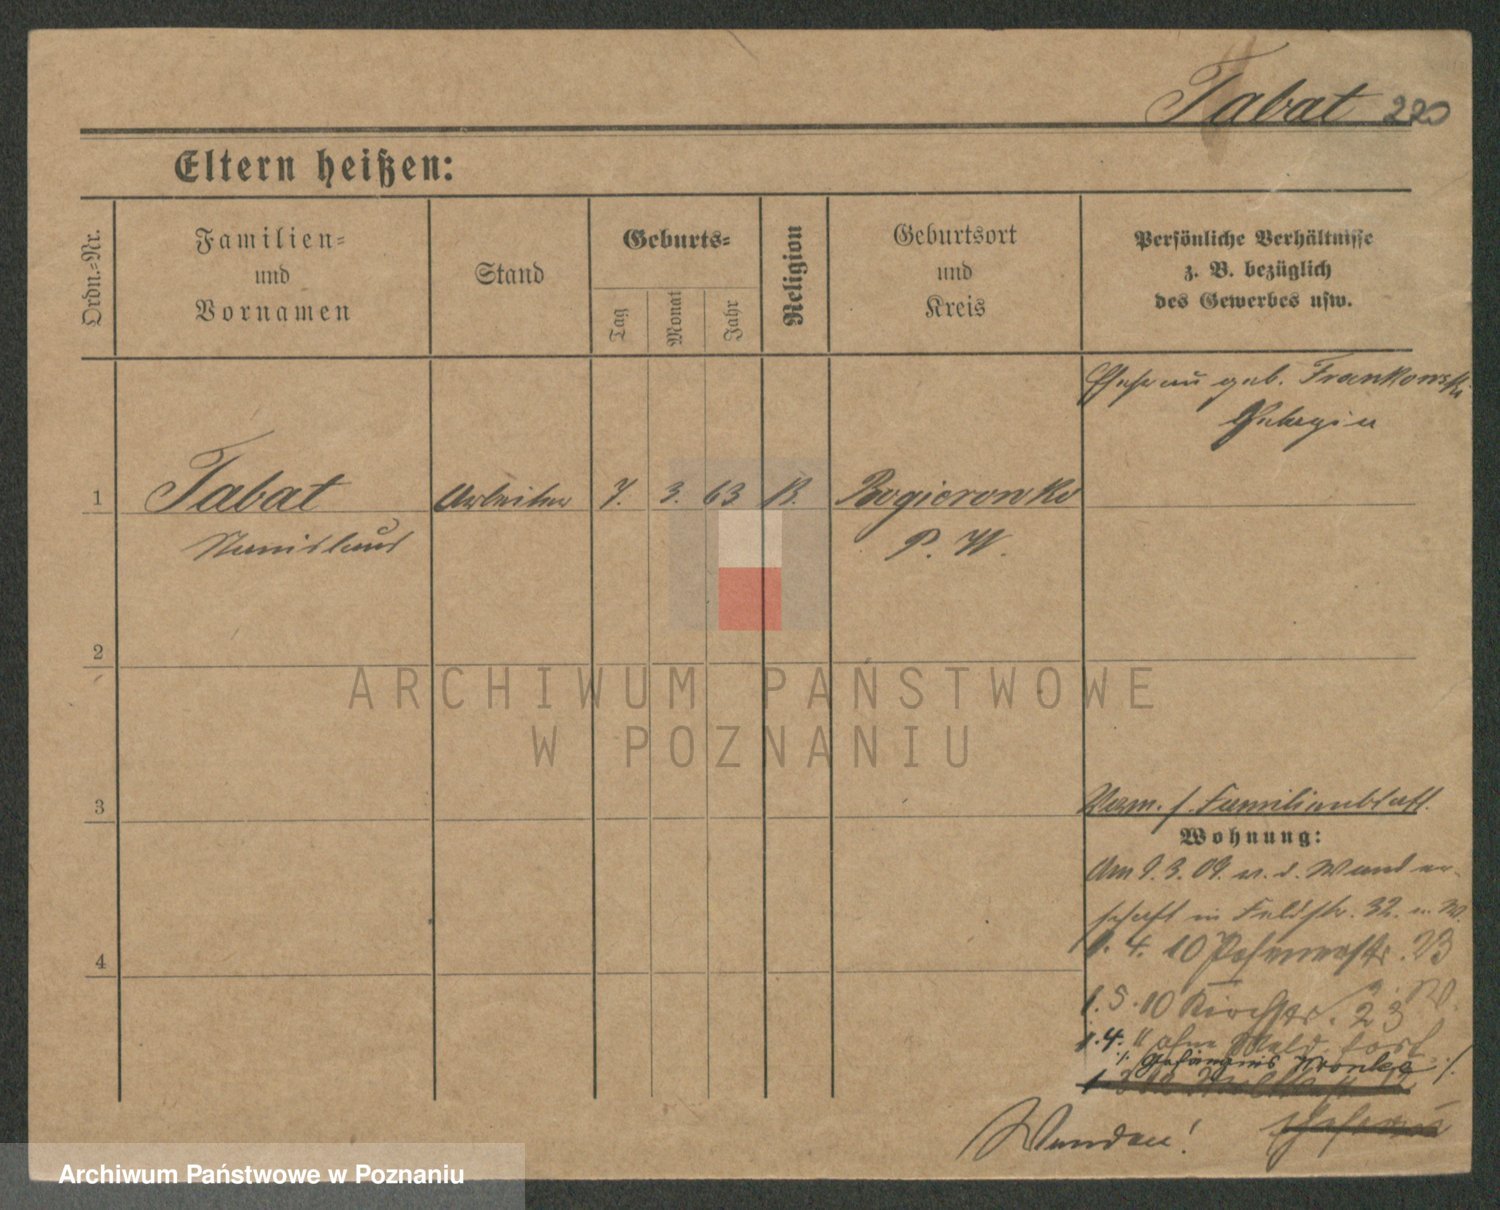 Tabat 220
Eltern heißen:
Ordn.-Nr.
Familien-
und
Vornamen
Stand
Geburts-
Tag
Monat
Jahr
Religion
Geburtsort
und
Kreis
Persönliche Verhältnisse
z. B. bezüglich
des Gewerbes usw.
Ehefrau geb. Frankowski
1 Tabat Arbeiter 7. 3. 63
Stanislaus P. W.
2
ARCHIWUM PAŃSTWOWE
W POZNANIU
3
Verm. s. Familienblatt.
Wohnung:
Am 9.3.09. v. d. Wander-
schaft in Feldstr. 32. u. W.
4
1. 4. 10 23
1. 5. 10 Kirchstr. 23
1. 4. 11 ohne Meld. fort
Gefängnis Wronke
Wenden!
Archiwum Państwowe w Poznaniu